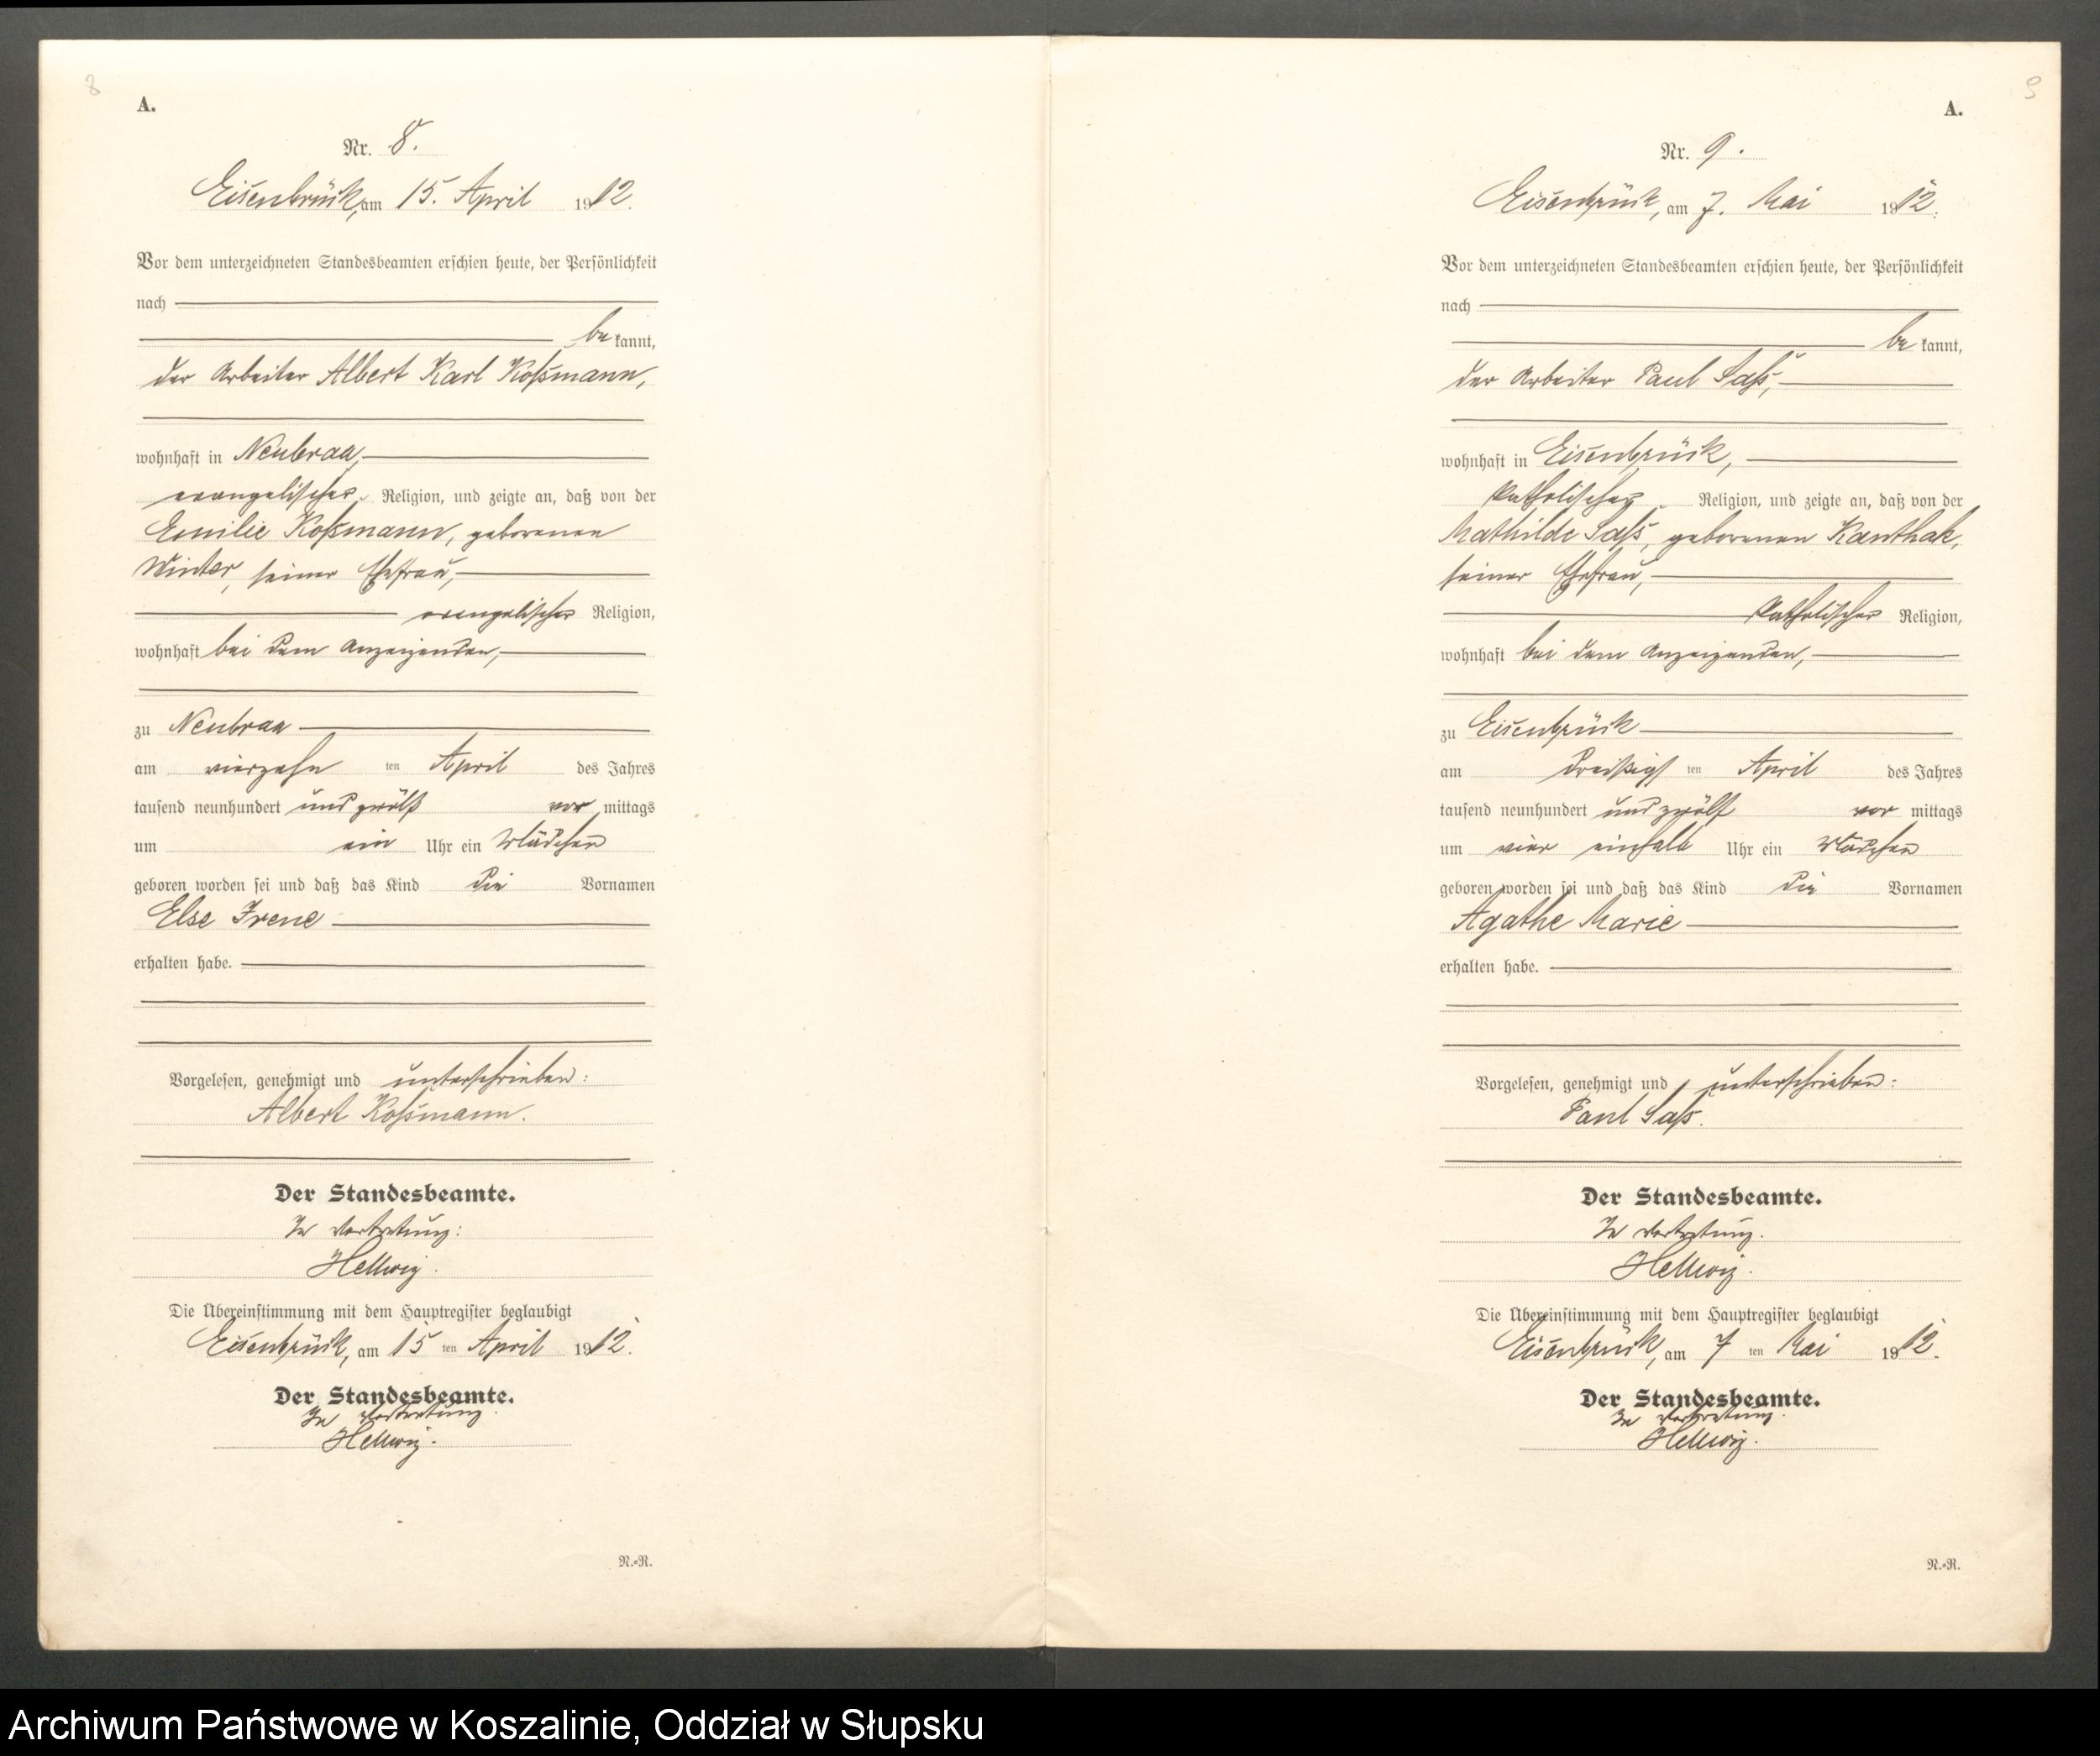 8
A.
Nr. 8.
Eisenbrück, am 15. April 1912.
Vor dem unterzeichneten Standesbeamten erschien heute, der Persönlichkeit
nach
be kannt,
der Arbeiter Albert Karl Koßmann,
wohnhaft in Neubraa,
evangelischer Religion, und zeigte an, daß von der
Emilie Koßmann, geborenen
Winter, seiner Ehefrau,
evangelischer Religion,
wohnhaft bei dem Anzeigenden,
zu Neubraa
am vierzehn ten April des Jahres
tausend neunhundert und zwölf vor mittags
um ein Uhr ein Mädchen
geboren worden sei und daß das Kind die Vornamen
Else Irene
erhalten habe.
Vorgelesen, genehmigt und unterschrieben:
Albert Koßmann.
Der Standesbeamte.
In Vertretung:
Hellwig.
Die Übereinstimmung mit dem Hauptregister beglaubigt
Eisenbrück, am 15 ten April 1912.
Der Standesbeamte.
In Vertretung.
Hellwig.
N.=R.
9
A.
Nr. 9.
Eisenbrück, am 7. Mai 1912.
Vor dem unterzeichneten Standesbeamten erschien heute, der Persönlichkeit
nach
be kannt,
der Arbeiter Paul Saß,
wohnhaft in Eisenbrück,
katholischer Religion, und zeigte an, daß von der
Mathilde Saß, geborenen Kanthak,
seiner Ehefrau,
katholischer Religion,
wohnhaft bei dem Anzeigenden,
zu Eisenbrück
am dreißigs ten April des Jahres
tausend neunhundert und zwölf vor mittags
um vier einhalb Uhr ein Mädchen
geboren worden sei und daß das Kind die Vornamen
Agathe Marie
erhalten habe.
Vorgelesen, genehmigt und unterschrieben:
Paul Saß.
Der Standesbeamte.
In Vertretung.
Hellwig.
Die Übereinstimmung mit dem Hauptregister beglaubigt
Eisenbrück, am 7 ten Mai 1912.
Der Standesbeamte.
In Vertretung.
Hellwig.
N.=R.
Archiwum Państwowe w Koszalinie, Oddział w Słupsku